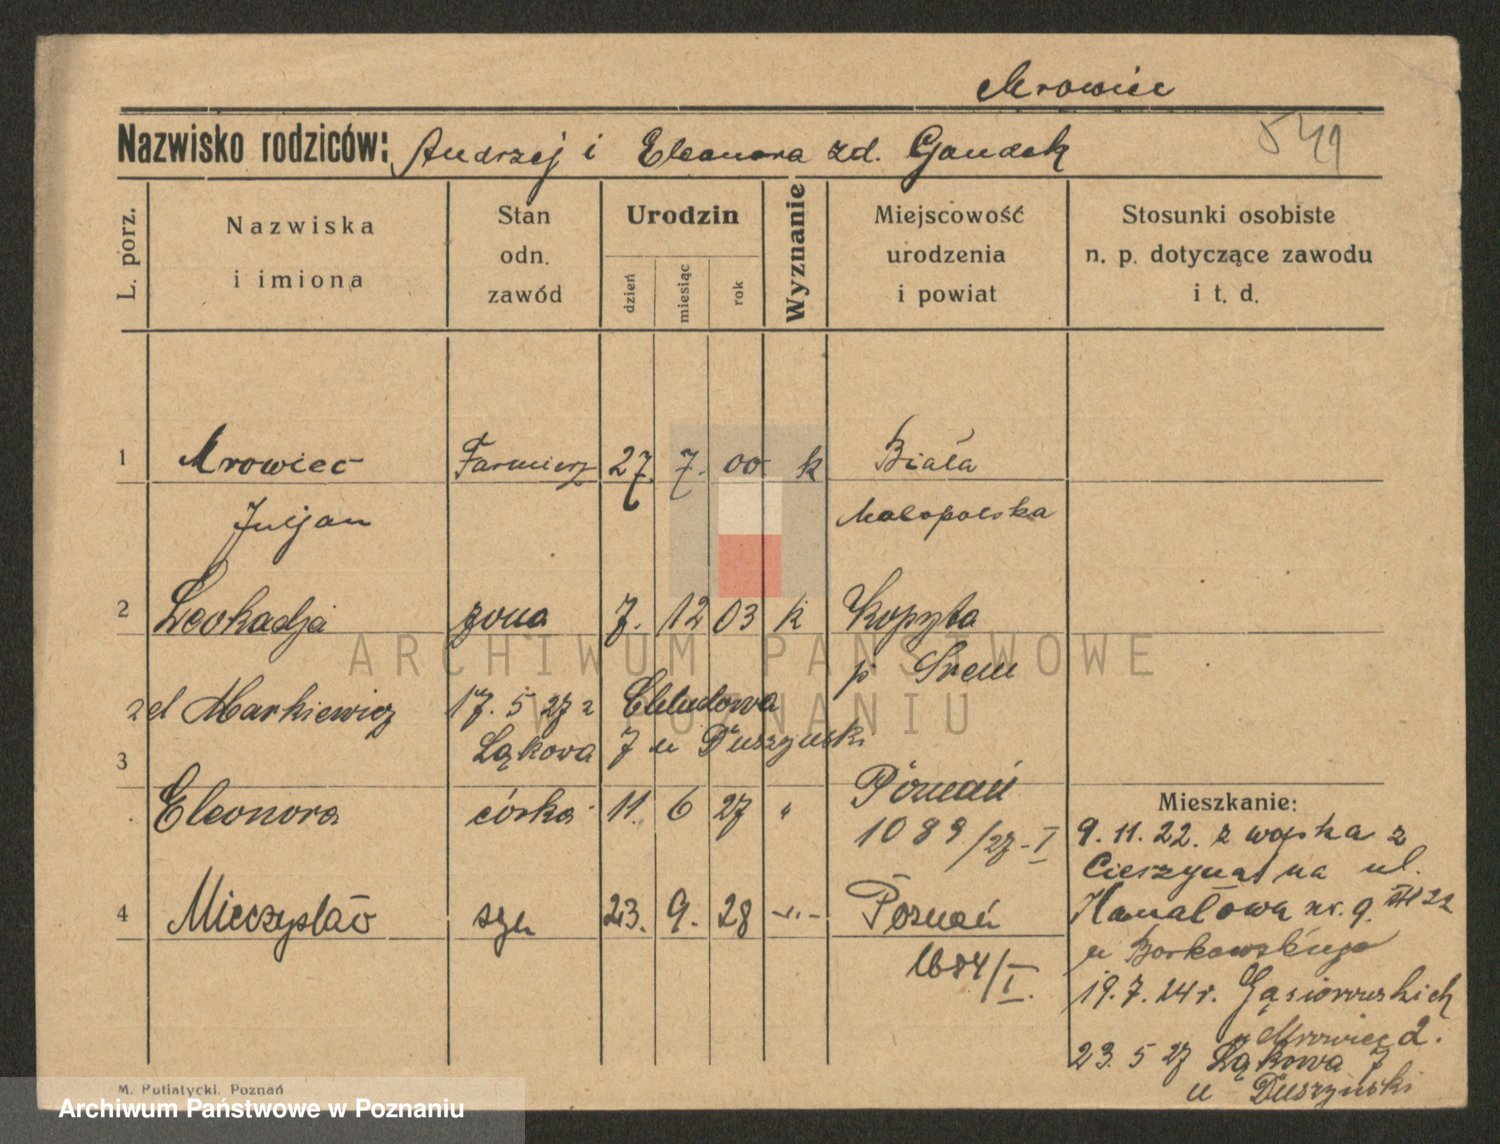 Mrowiec
Nazwisko rodziców: Andrzej i Eleonora zd. Gandek
L. porz.
Nazwiska
i imiona
Stan
odn.
zawód
Urodzin
dzień
miesiąc
rok
Wyznanie
Miejscowość
urodzenia
i powiat
Stosunki osobiste
n. p. dotyczące zawodu
i t. d.
1 Mrowiec 27. 7. 00 k Biała
Juljan Małopolska
2 Leokadja żona 7. 12 03 k Kopyta
p Śrem
zd Markiewicz 17. 5 27 z
Łąkowa 7 u Duszyński
3
Eleonora córka 11. 6 27 " Poznań
1089/27-I
4 Mieczysław syn 23. 9. 28 -"- Poznań
1684/I.
Mieszkanie:
9. 11. 22. z wojska z
Cieszyna na ul.
Kanałowa nr. 9.
u Borkowskiego
19. 7. 24 r. Gąsiorowskich
u Mrowiec 2.
23. 5 27 Łąkowa 7
u Duszyński
M. Putiatycki, Poznań
ARCHIWUM PAŃSTWOWE
W POZNANIU
Archiwum Państwowe w Poznaniu